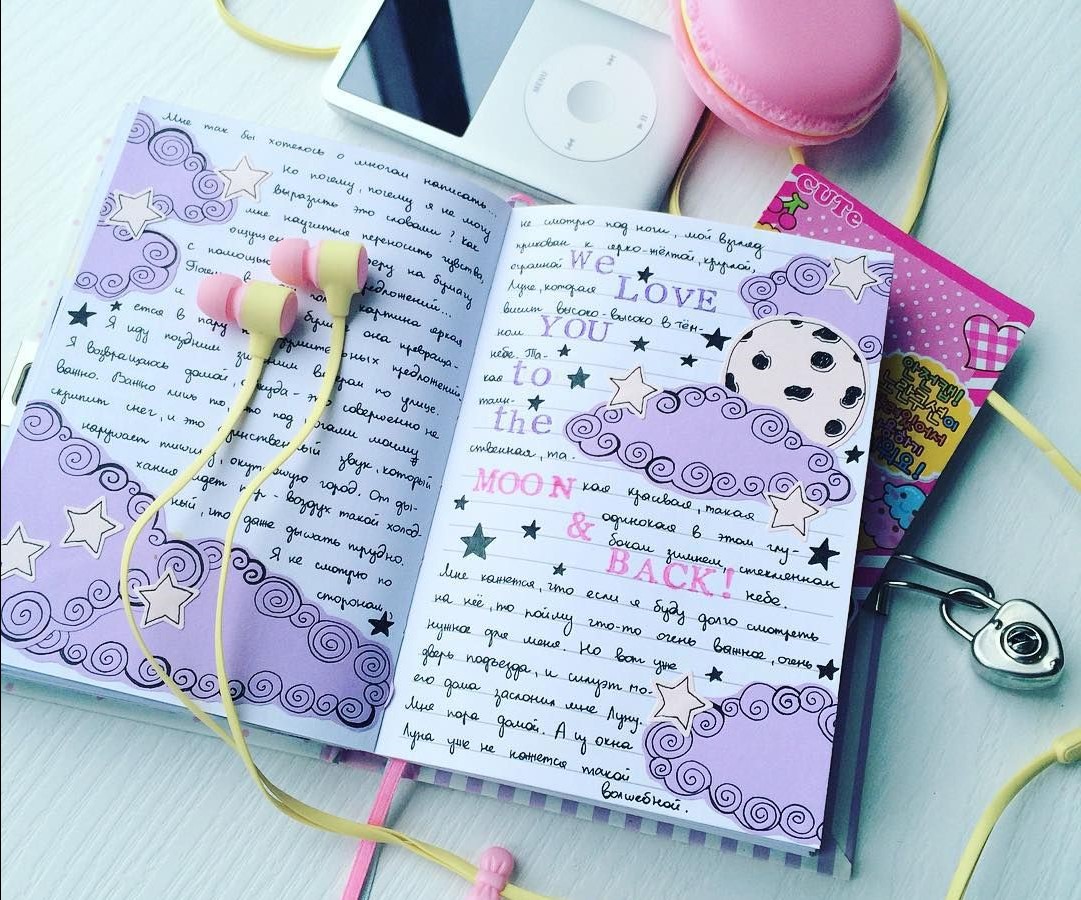 Мне так бы хотелось о многом написать...
Но почему, почему я не могу
выразить это словами? Как
мне научиться переносить чувства,
ощуще на бумагу
с помощью предложений...
Поче картина яркая
и она превраща-
ется в пару предложений.
Я иду поздним зимним вечером по улице.
Я возвращаюсь домой, откуда - это совершенно не
важно. Важно лишь то, что под ногами моими
скрипит снег, и это единственный звук, который
нарушает тишину, окутавшую город. От ды-
хания идет пар - воздух такой холод-
ный, что даже дышать трудно.
Я не смотрю по
сторонам,
не смотрю под ноги, мой взгляд
прикован к ярко-жёлтой, круглой,
огромной
Луне, которая
висит высоко-высоко в тём-
ном
небе. Та-
кая
таин-
ственная, та-
кая красивая, такая
одинокая в этом глу-
боком зимнем, стеклянном
небе.
Мне кажется, что если я буду долго смотреть
на неё, то пойму что-то очень важное, очень
нужное для меня. Но вот уже
дверь подъезда, и силуэт мо-
его дома заслонил мне Луну.
Мне пора домой. А из окна
Луна уже не кажется такой
волшебной.
we
LOVE
YOU
to
the
MOON
&
BACK!
MENU
CUTe